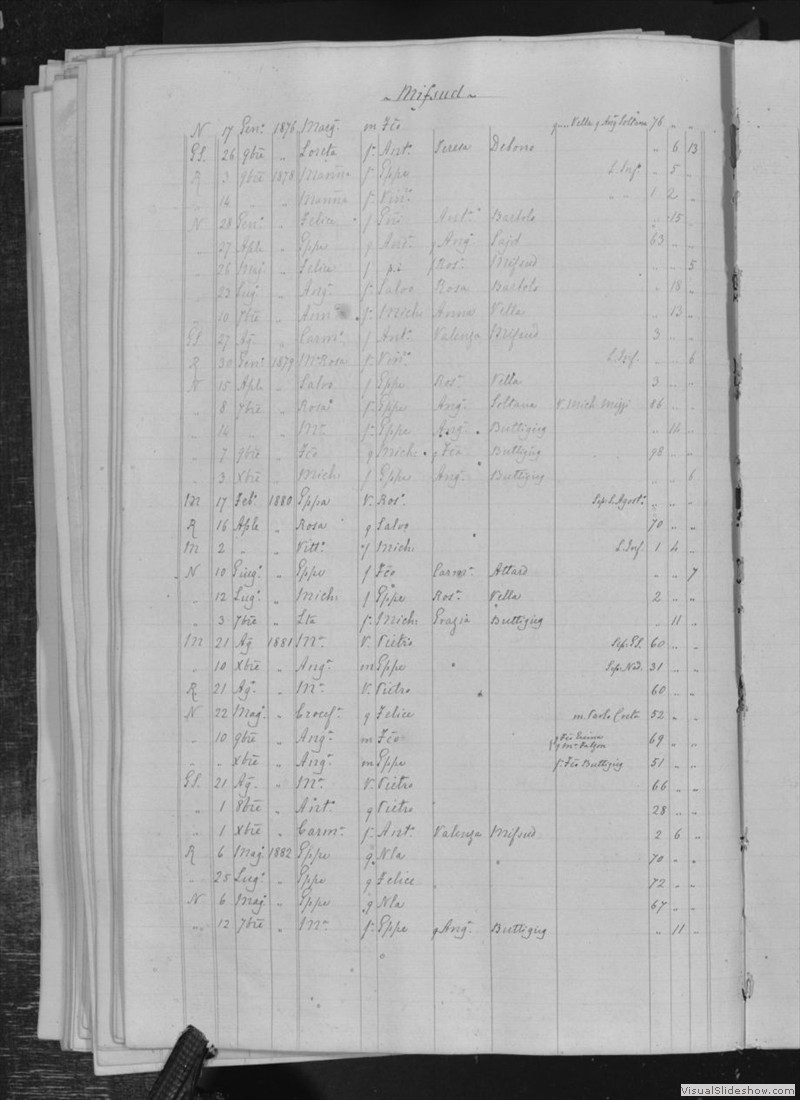 ~ Mifsud ~
N 17 Genº 1876 Marg m Fcõ Vella q Angº Soltana 76 „ „
GS. 26 9bre „ Loreta f. Antº Teresa Debono „ 6 13
R 3 9bre 1878 f. Eppe S. Infº „ 5 „
„ 14 „ „ f. Vinº „ „ 1 2 „
N 28 Genº „ Felice f Antº Bartolo „ 15 „
„ 27 Aple „ Eppe q Antº q Angº Sajd 63 „ „
„ 26 „ Felice f p.i f Rosª Mifsud „ „ 5
„ 23 Lugº „ Angº f. Salvo Rosa Bartolo „ 18 „
„ 10 7bre „ f. Mich Anna Vella „ 13 „
GS. 27 Agº „ Carmª f Antº Valenza Mifsud 3 „ „
R 30 Genº 1879 Mª Rosa f. Vinº S. Inf. „ „ 6
N 15 Aple „ Salvo f Eppe Rosª Vella 3 „ „
„ 8 7bre „ Rosaº f. Eppe Angª Soltana v. Mich Mizzi 86 „ „
„ 14 „ „ Mª f. Eppe Angª Buttigieg „ 14 „
„ 7 9bre „ Fcõ q Mich q Fca Buttigieg 98 „ „
„ 3 Xbre „ Mich f Eppe Angª Buttigieg „ „ 6
M 17 Febº 1880 Eppa V. Rosº Sep. S. Agostº „ „
R 16 Aple „ Rosa q Salvo 70 „ „
M 2 „ „ Vittª f Mich S. Inf. 1 4 „
N 10 Giugº „ Eppe f Fcõ Carmª Attard „ „ 7
„ 12 Lugº „ Mich f Eppe Rosª Vella 2 „ „
„ 3 7bre „ Lta f. Mich Grazia Buttigieg „ 11 „
M 21 Ag 1881 Mª V. Pietro Sep. GS. 60 „ „
„ 10 Xbre „ Angª m Eppe Sep. Nad. 31 „ „
R 21 Agº „ Mª V. Pietro 60 „ „
N 22 Magº „ Crocefª q Felice m. Paolo 52 „ „
„ 10 9bre „ Angª m Fcõ 69 „ „
„ „ Xbre „ Angª m Eppe f. Fcõ Buttigieg 51 „ „
GS. 21 Ag „ Mª V. Pietro 66 „ „
„ 1 8bre „ Antº q Pietro 28 „ „
„ 1 Xbre „ Carmª f. Antº Valenza Mifsud 2 6 „
R 6 Mag 1882 Eppe q Nla 70 „ „
„ 25 Lugº „ Eppe q Felice 72 „ „
N 6 Mag „ Eppe q Nla 67 „ „
„ 12 7bre „ Mª f. Eppe q Angº Buttigieg „ 11 „
VisualSlideshow.com